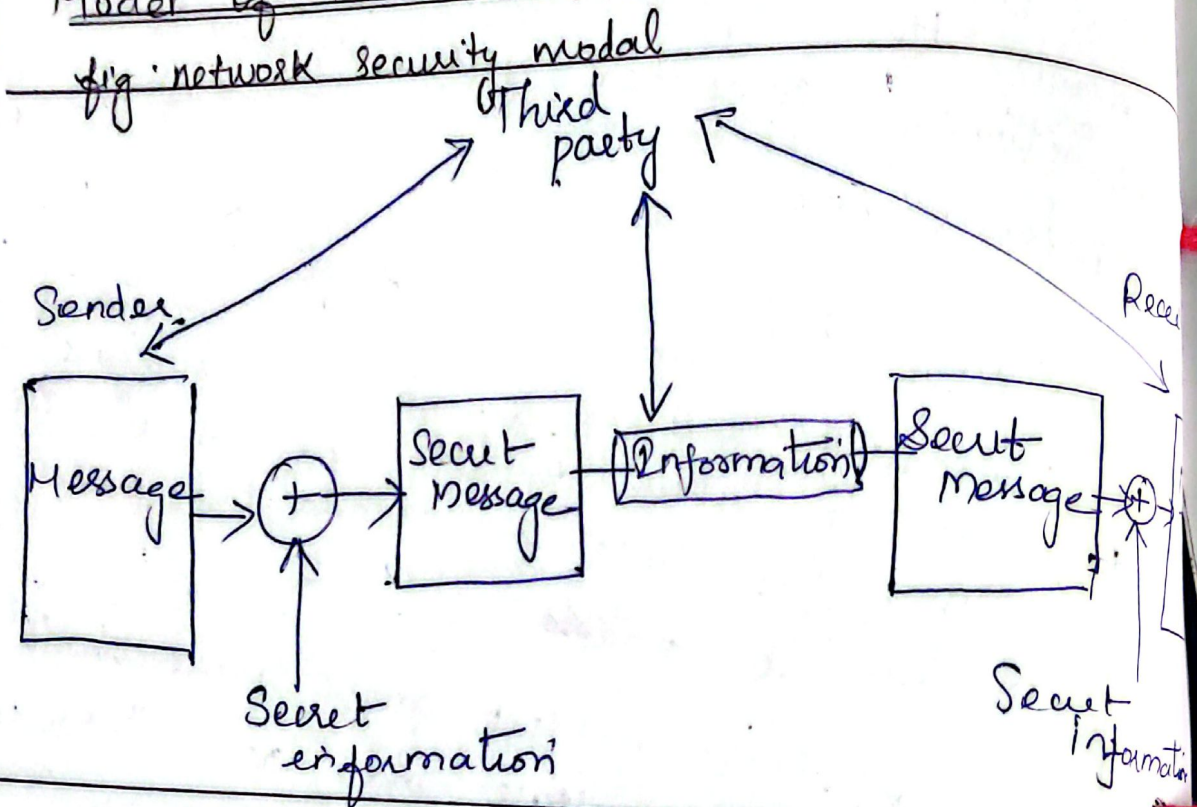 Model of
fig: network security modal
Third
party
Sender
Message
+
Secret
Message
Information
Secret
Message
+
Secret
information
Secret
Information